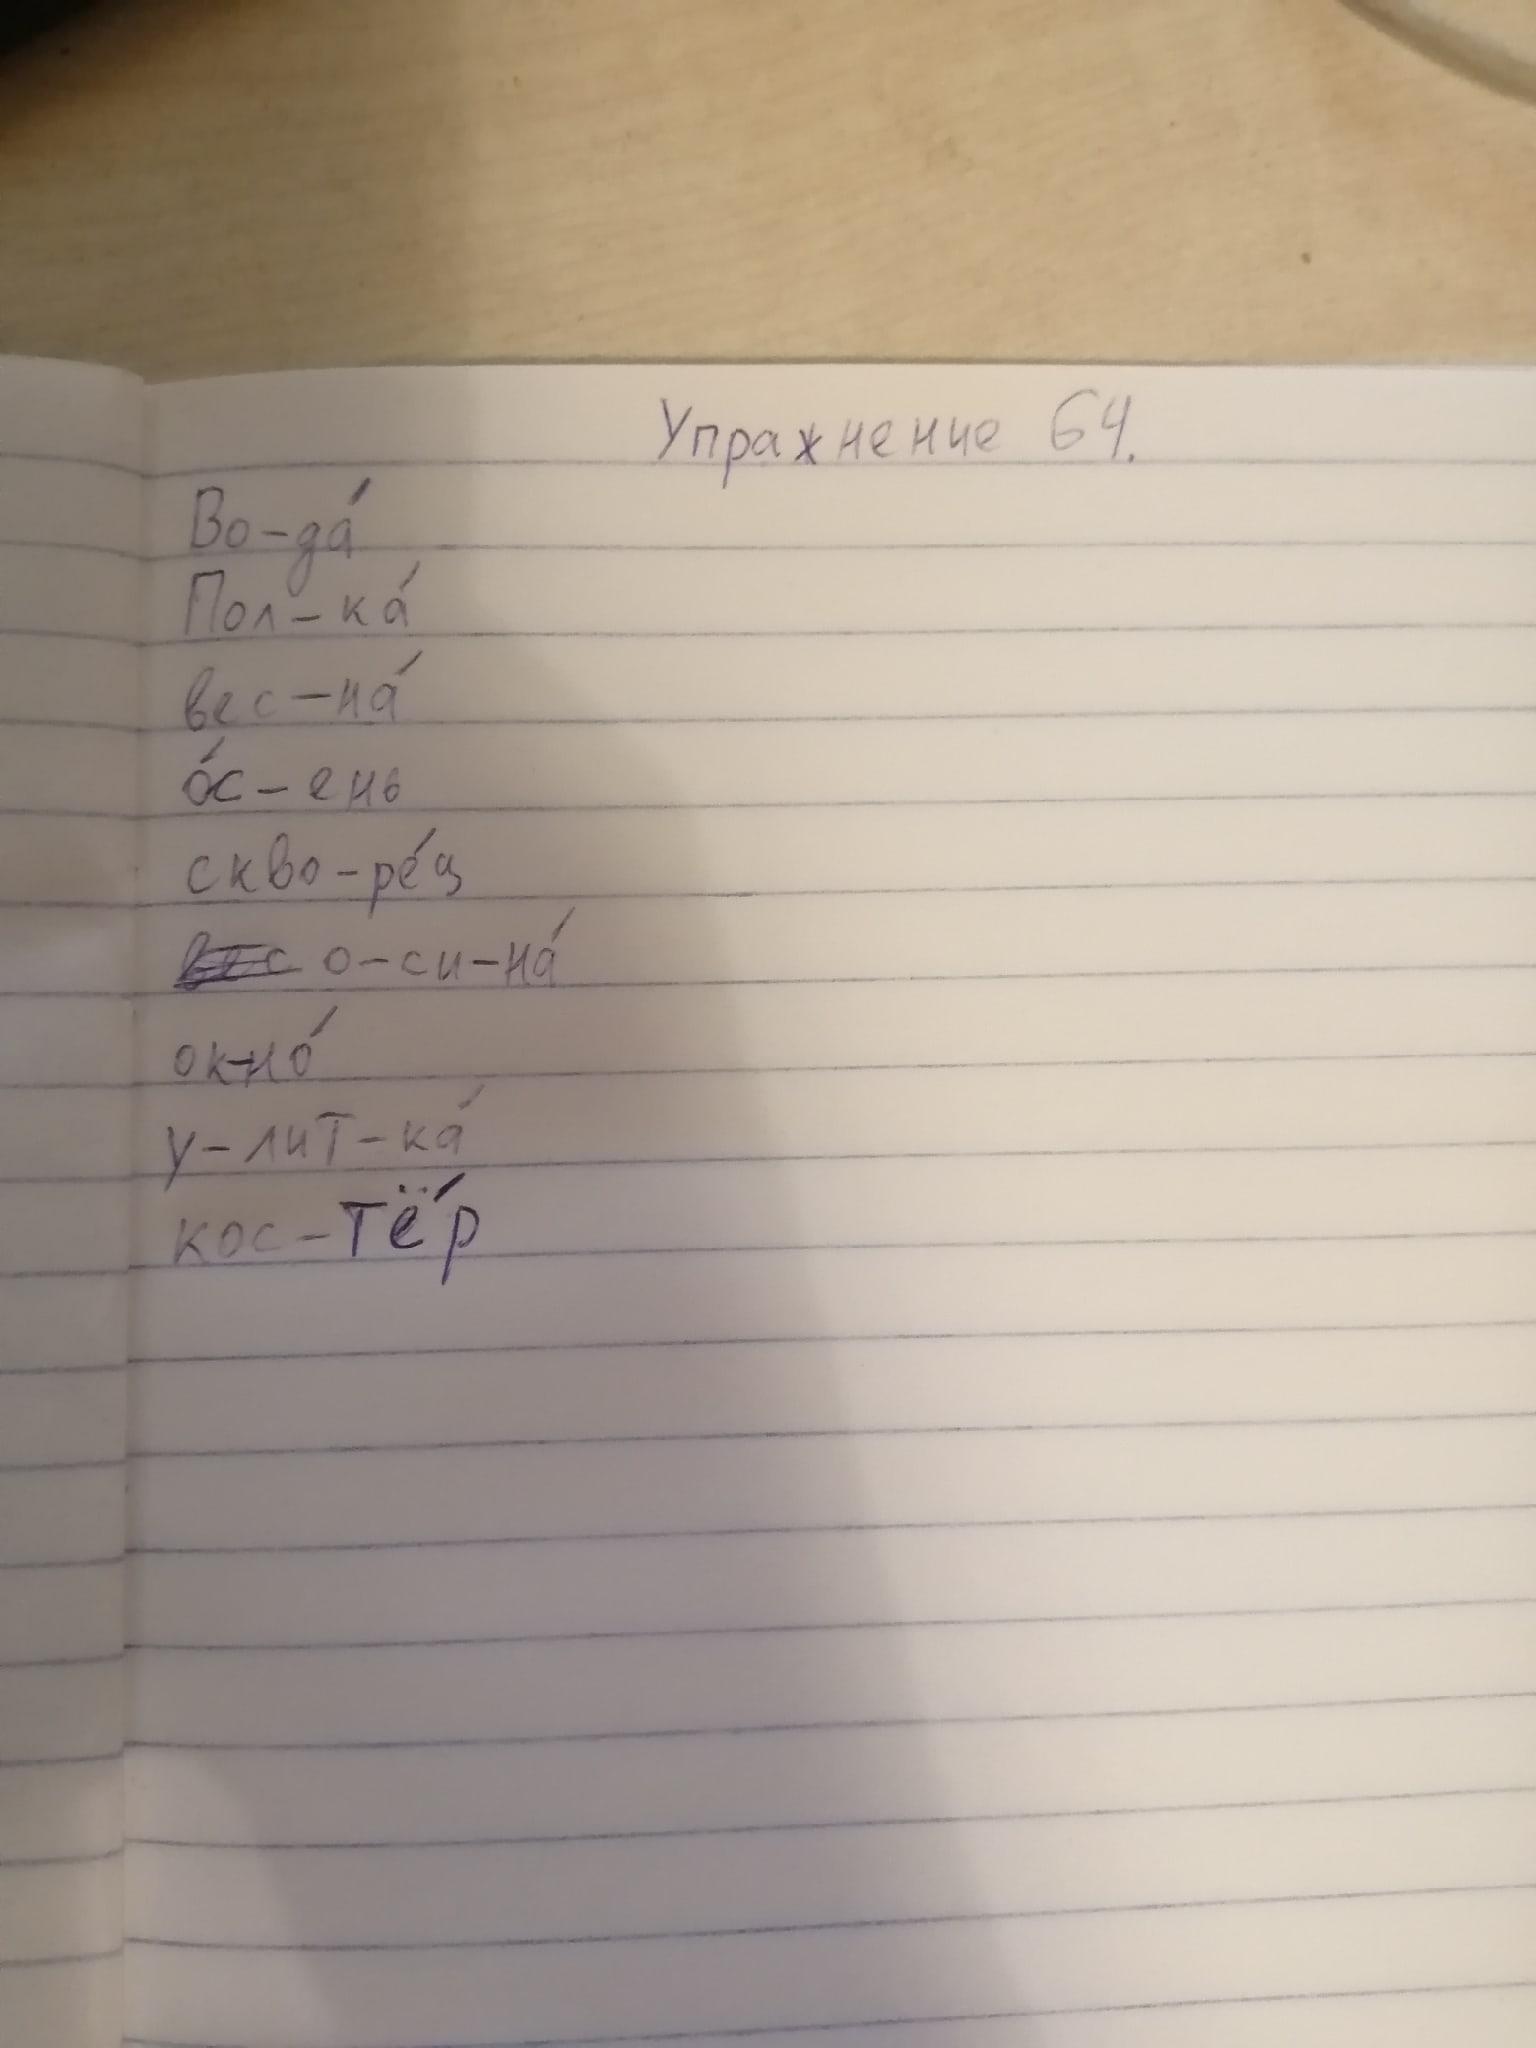 Упражнение 64.
Во-да́
Пол-ка́
вес-на́
о́с-ень
скво-ре́ц
о-си-на́
ок-но́
у-лит-ка́
кос-тё́р